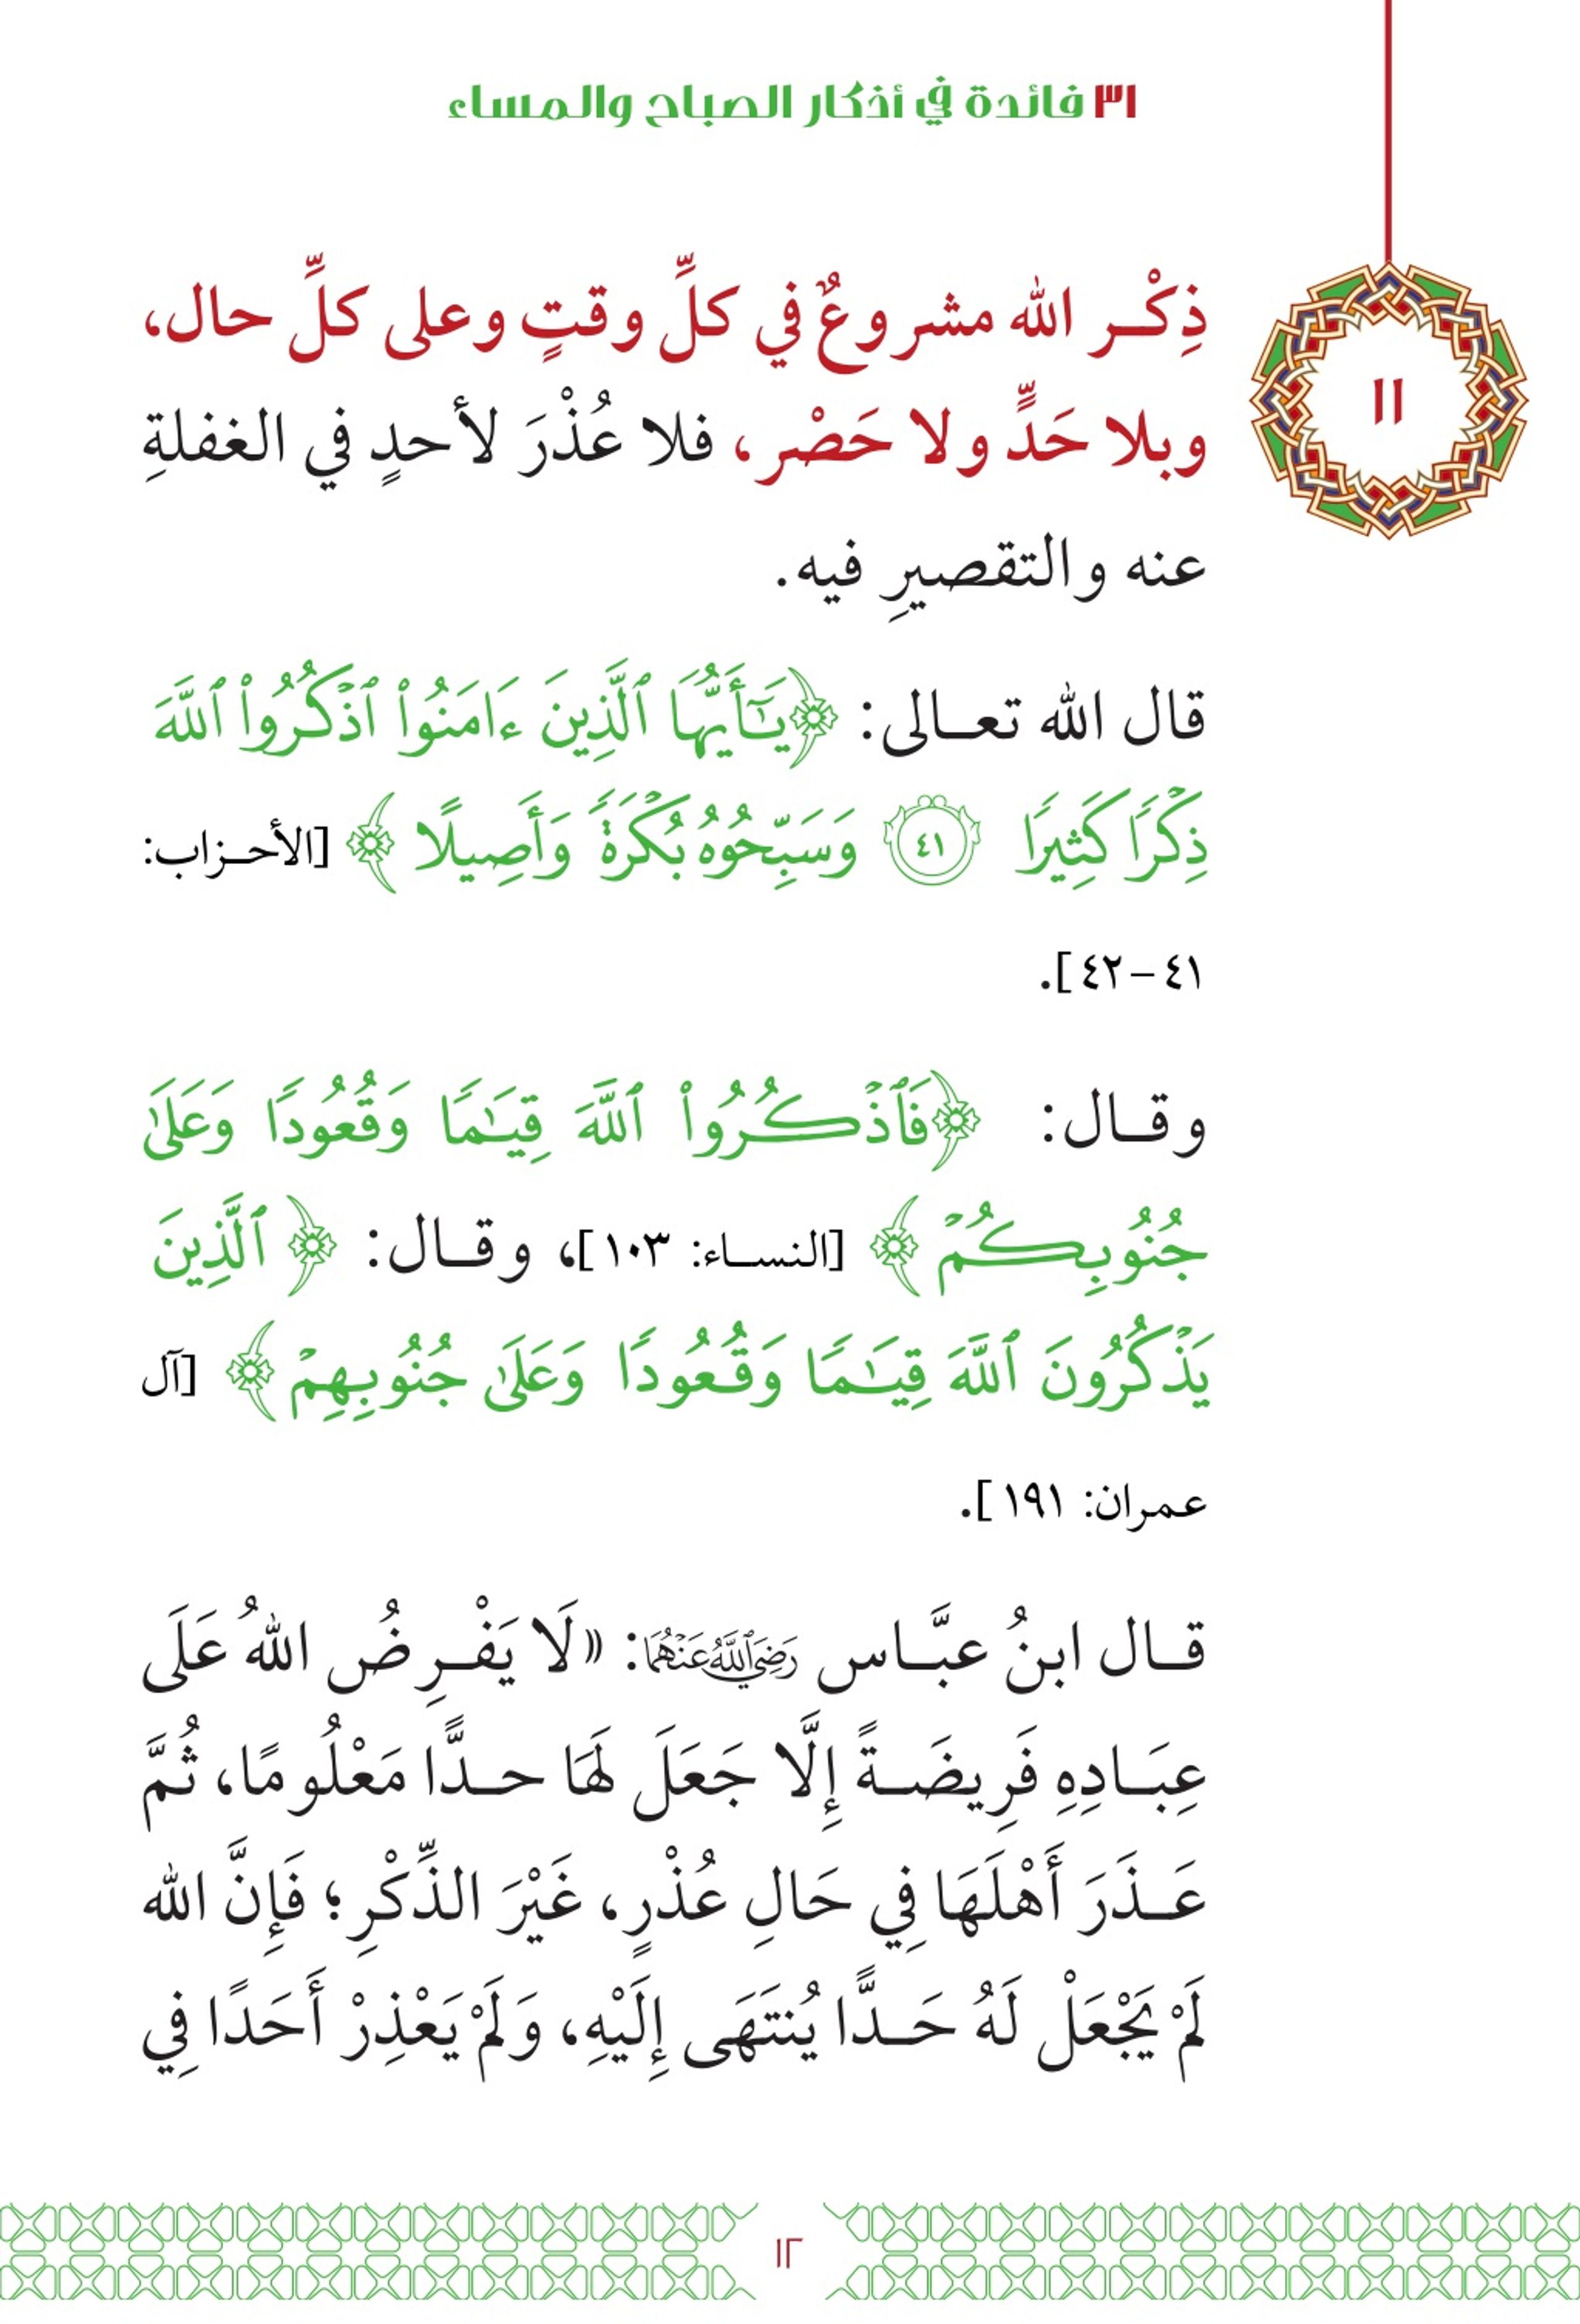 ٣١ فائدة في أذكار الصباح والمساء
١١
ذِكْـر الله مشروعٌ في كلِّ وقتٍ وعلى كلِّ حال،
وبلا حَدٍّ ولا حَصْر، فلا عُذْرَ لأحدٍ في الغفلةِ
عنه والتقصيرِ فيه.
قال الله تعـالى: ﴿يَـٰٓأَيُّهَا ٱلَّذِينَ ءَامَنُوا۟ ٱذْكُرُوا۟ ٱللَّهَ
ذِكْرًا كَثِيرًا ٤١ وَسَبِّحُوهُ بُكْرَةً وَأَصِيلًا﴾ [الأحـزاب:
٤١-٤٢].
وقـال: ﴿فَٱذْكُرُوا۟ ٱللَّهَ قِيَـٰمًا وَقُعُودًا وَعَلَىٰ
جُنُوبِكُمْ﴾ [النسـاء: ١٠٣]، وقـال: ﴿ٱلَّذِينَ
يَذْكُرُونَ ٱللَّهَ قِيَـٰمًا وَقُعُودًا وَعَلَىٰ جُنُوبِهِمْ﴾ [آل
عمران: ١٩١].
قـال ابنُ عبَّـاس رَضِيَ ٱللَّهُ عَنْهُمَا: «لَا يَفْـرِضُ اللهُ عَلَى
عِبَـادِهِ فَرِيضَـةً إِلَّا جَعَلَ لَهَا حـدًّا مَعْلُومًا، ثُمَّ
عَـذَرَ أَهْلَهَا فِي حَالِ عُذْرٍ، غَيْرَ الذِّكْرِ؛ فَإِنَّ الله
لَمْ يَجْعَلْ لَهُ حَـدًّا يُنتَهَى إِلَيْهِ، وَلَمْ يَعْذِرْ أَحَدًا فِي
١٢